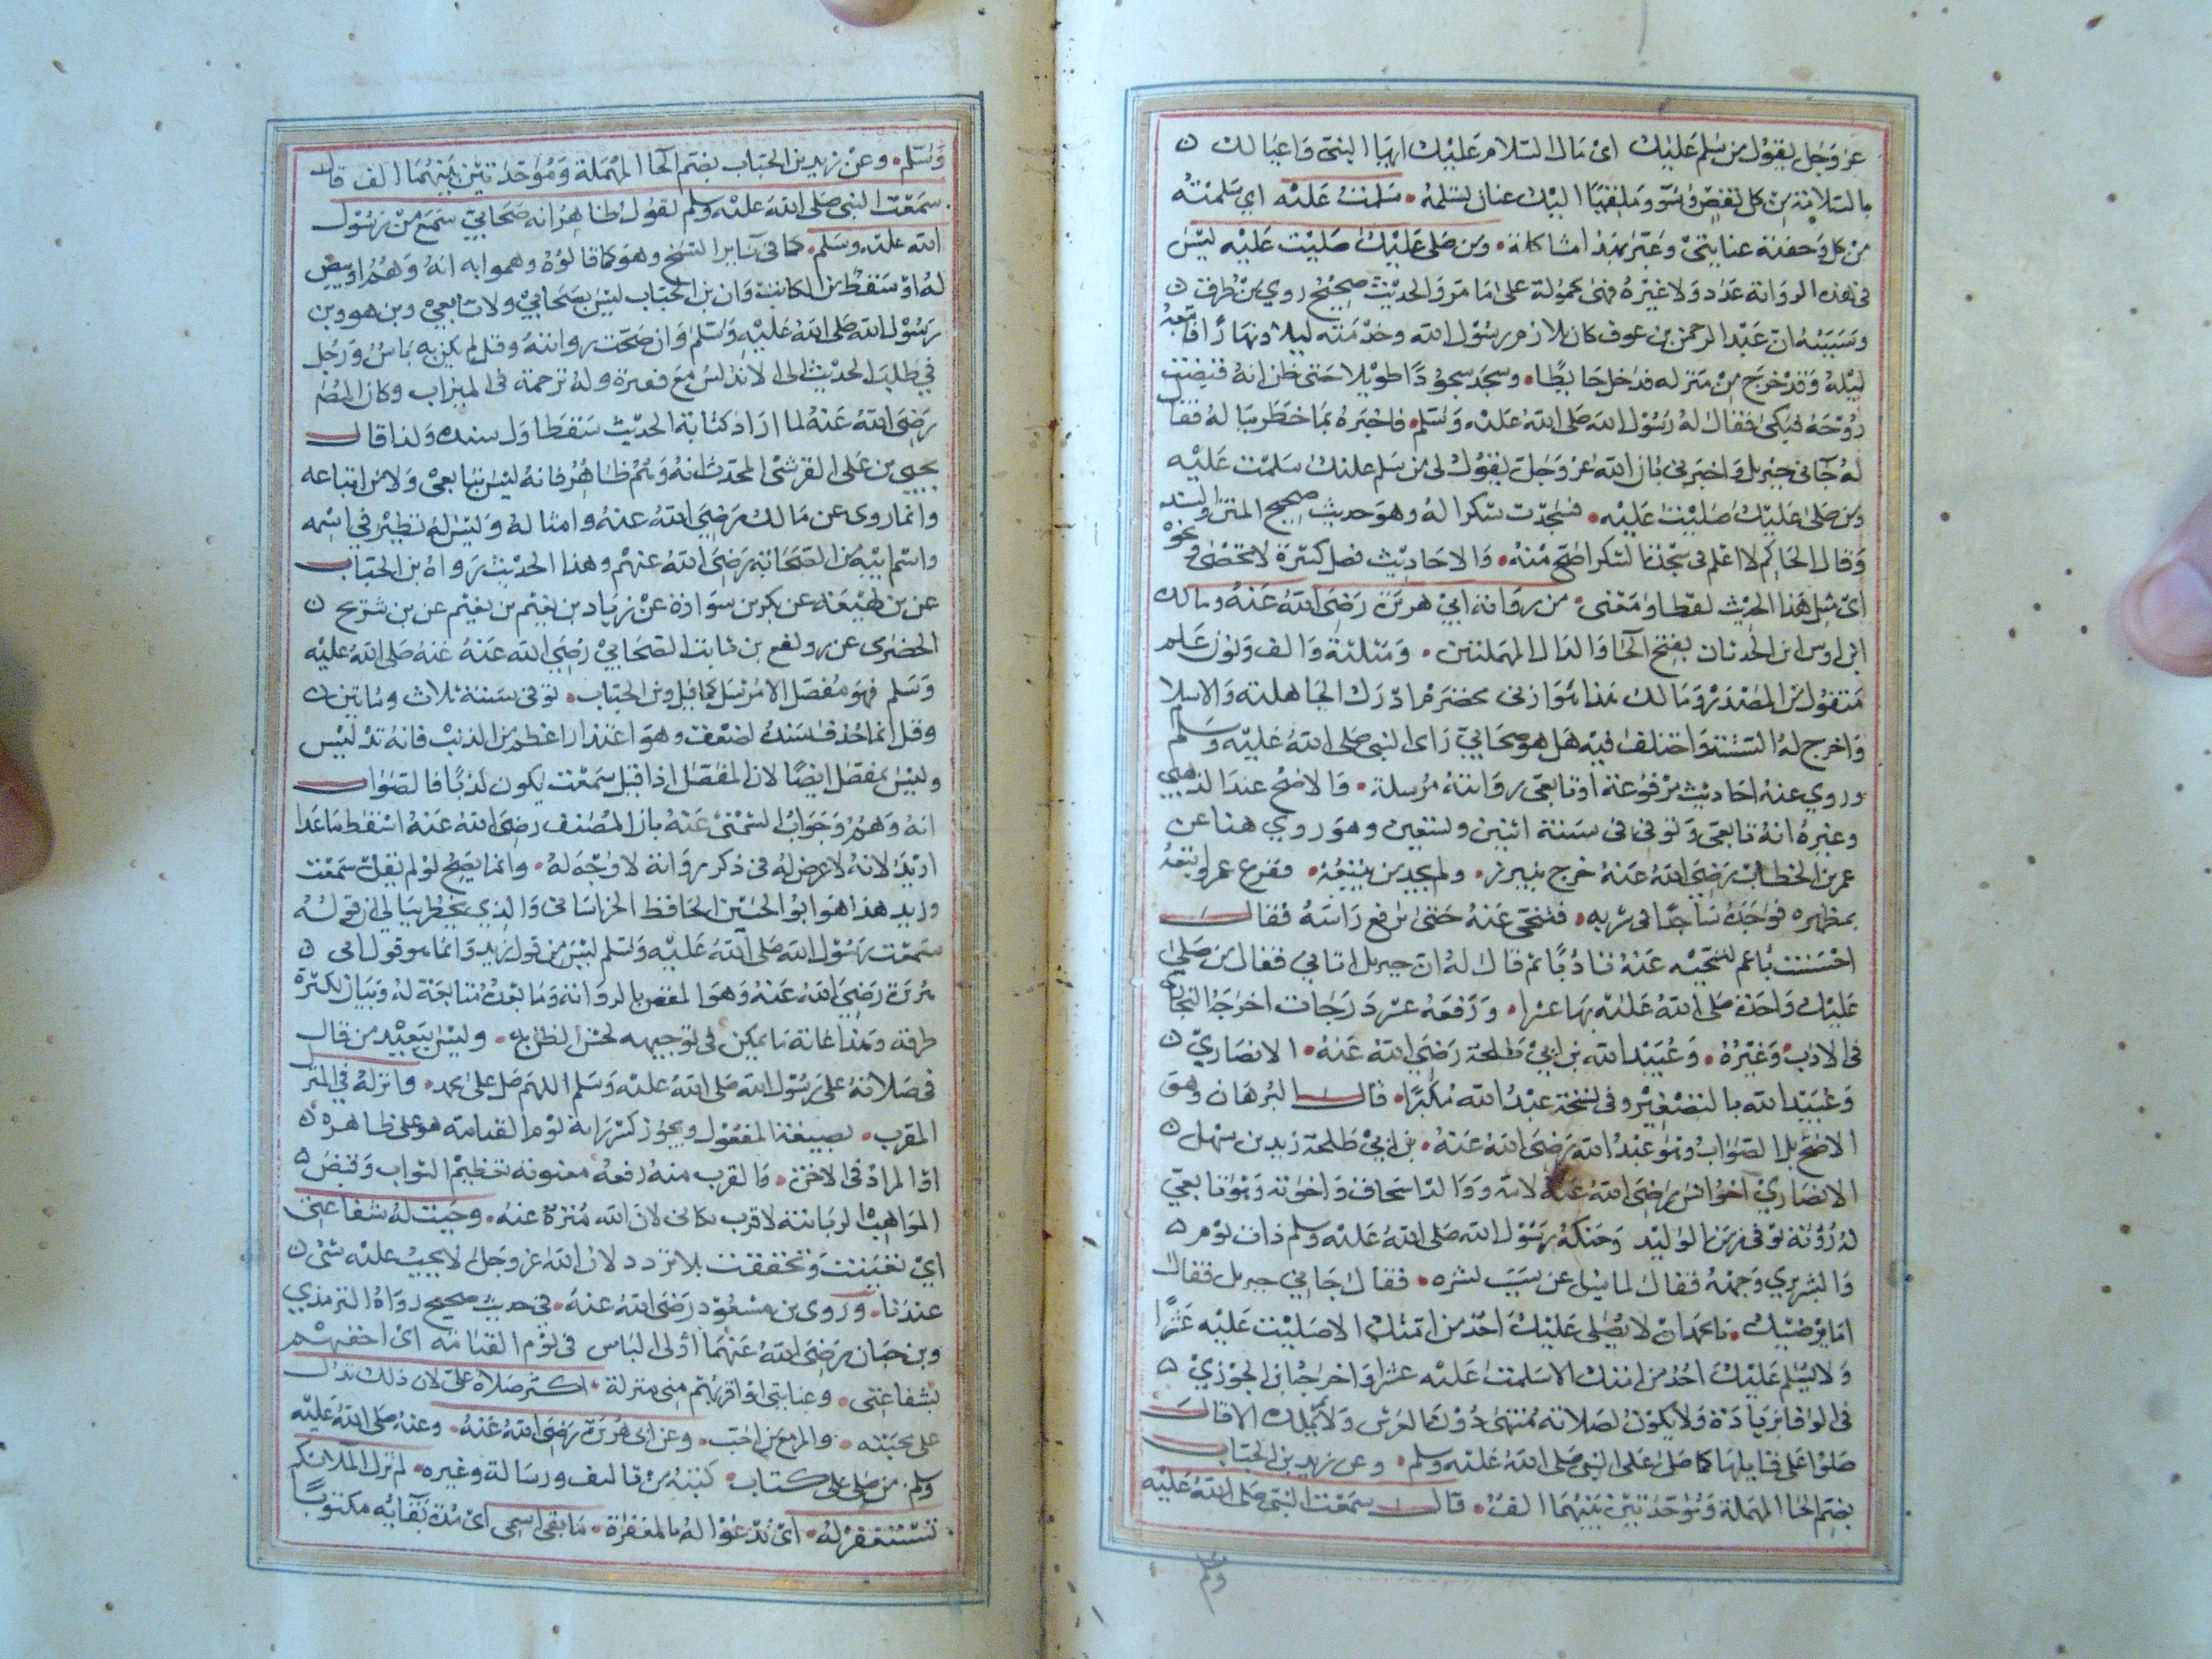 عز وجل يقول من سلم عليك اى نال السلام عليك ايها النبى واعيا لك
بالسلامة من كل نقص وسوء ومليقيها اليك عنان لتسلمه سلمت عليه اي سلمته
من كل وحفته عنايتى وعبر بهذا مشاكلة ومن صلى عليك صليت عليه ليس
فى هذه الرواية عدد ولا غيره فهى محمولة على ما مر والحديث صحيح روي من طرق
وسببه ان عبد الرحمن بن عوف كان يلازم رسول الله وخدمته ليلا ونهارا فاتبعه
ليلة وقد خرج من منزله فدخل حايطا وسجد سجودا طويلا حتى ظن انه قبضت
روحه فبكى فقال له رسول الله صلى الله عليه وسلم فاخبره بما خطر بباله فقا
له جآنى جبريل واخبرنى بان الله عز وجل يقول لى من سلم عليك سلمت عليه
ومن صلى عليك صليت عليه فسجدت شكرا له وهو حديث صحيح المتن والسند
وقال الحاكم لا اعلم فى سجدة الشكر اصح منه والاحاديث فى كثرة لا تحصى ونحو
اى مثل هذا الحديث لفظا او معنى من رواية ابي هريرة رضي الله عنه ومالك
ابن اوس ابن الحدثان بفتح الحا والدال المهملتين ومثلثة والف ونون علم
منقول من المصدر ومالك هذا هوازنى مخضرم ادرك الجاهلية والاسلا
واخرج له الستة واختلف فيه هل هو صحابي راى النبى صلى الله عليه وسلم
وروي عنه احاديث مرفوعة او تابعى روايته مرسلة والاصح عند الذهبي
وغيره انه تابعى وتوفى فى سنة اثنين وتسعين وهو روي هنا عن
عمر بن الخطاب رضي الله عنه خرج يتبرز ولم يجد من يتبعه ففزع عمر واتبعه
بمطهره فوجده ساجدا فى شربه فتنحى عنه حتى رفع راسه فقال
احسنت يا عمر لتنحيه عنه تادبا ثم قال له ان جبريل اتاني فقال من صلى
عليك واحدة صلى الله عليه بها عشرا ورفعه عشر درجات اخرجه البخاري
فى الادب وغيره وعبيد الله بن ابي طلحة رضي الله عنه الانصاري
وعبيد الله بالتصغير وفى نسخة عبد الله مكبرا قال البرهان وهو
الاصح بل الصواب وهو عبد الله رضي الله عنه بن ابي طلحة زيد بن سهل
الانصاري اخو انس رضي الله عنه لامه ووالد اسحاق واخوته وهو تابعي
له رؤية توفى زمن الوليد وحنكه رسول الله صلى الله عليه وسلم ذات يوم
والبشر يري وجهه فقال لما سيل عن سبب بشره فقال جاني جبريل فقال
اما يرضيك يا محمد ان لا يصلى عليك احد من امتك الا صليت عليه عشرا
ولا يسلم عليك احد من امتك الا سلمت عليه عشرا واخر ابن الجوزي
فى الوفا زيادة ولا يكون لصلاته منتهى دون العرش ولا بملك الا قال
صلوا على قايلها كما صلى على النبى صلى الله عليه وسلم وعن زيد بن الحباب
بضم الحا المهملة وموحدتين بينهما الف قال سمعت النبى صلى الله عليه
وسلم
وسلم وعن زيد بن الحباب بضم الحا المهملة وموحدتين بينهما الف قال
سمعت النبى صلى الله عليه وسلم يقول ظاهره انه صحابي سمع من رسول
الله عليه وسلم كما فى ساير النسخ وهو كما قالوه وهم وابه انه وهم او بيض
له او سقط من الكاتب وان بن الحباب ليس بصحابي ولا تابعي وبن هو وبن
رسول الله صلى الله عليه وسلم وان صحت روايته وقل لم يكن به باس ورحل
في طلب الحديث الى الاندلس مع فقره وله ترجمة فى الميزان وكان المصنف
رضي الله عنه لما اراد كتابة الحديث سقط اول سنده ولذا قال
يحيى بن على القرشى المحدث انه وهم ظاهر فانه ليس بتابعى ولا من اتباعه
وانما روى عن مالك رضي الله عنه وامثاله وليس له نظير في اسمه
واسم ابيه من الصحابة رضي الله عنهم وهذا الحديث رواه بن الحباب
عن بن لهيعة عن بكر بن سوادة عن زياد بن نعيم بن نعيم عن بن شريح
الحضرمى عن رويفع بن ثابت الصحابي رضي الله عنه عنه صلى الله عليه
وسلم فهو معضل لا مرسل كما قيل وبن الحباب توفى سنة ثلاث ومايتين
وقل انما حذف سنده لضعفه وهو اعتذار اعظم من الذنب فانه تدليس
وليس بمعضل ايضا لان المعضل اذا قيل سمعت يكون كذبا فالصواب
انه وهم وجواب الشمنى عنه بان المصنف رضي الله عنه اسقط ما عدا
ازيد لانه لا غرض له فى ذكر رواية لا وجه له وانما يصح لو لم يقل سمعت
وزيد هذا هو ابو الحسين الحافظ الخراسانى والذي يخطر ببالي ان قوله
سمعت رسول الله صلى الله عليه وسلم ليس من قول زيد وانما هو قول ابى
هريرة رضي الله عنه وهو المقصود بالرواية وما بعده متابعة له وبيان لكثرة
طرقه وهذا غاية ما يمكن فى توجيهه لحسن الظن به وليس ببعيد من قال
فى صلاته على رسول الله صلى الله عليه وسلم اللهم صل على محمد وانزله في المنزل
المقرب بصيغة المفعول ويجوز كسر رايه يوم القيامة هو على ظاهره
او المراد فى الاخرة والقرب منه رفعه معنوية تعظيم الثواب وقبض
المواهب الربانية لا قرب مكانى لان الله منزه عنه وجبت له شفاعتى
اي تعينت وتحققت بلا تردد لان الله عز وجل لا يجب عليه شى
عندنا وروى بن مسعود رضي الله عنه في حديث صحيح رواه الترمذي
وبن حبان رضي الله عنهما اولى الناس فى يوم القيامة اى احقهم
بشفاعتى وعنايتى او اقربهم منى منزلة اكثرهم صلاة على لان ذلك يدل
على محبته والمرء مع من احب وعن ابى هريرة رضي الله عنه وعنه صلى الله عليه
وسلم من صلى على كتاب كتبه من تاليف ورسالة وغيره لم تزل الملائكة
تستغفر له اى تدعوا له بالمغفرة ما بقى اسمى اى مدة بقايه مكتوبا